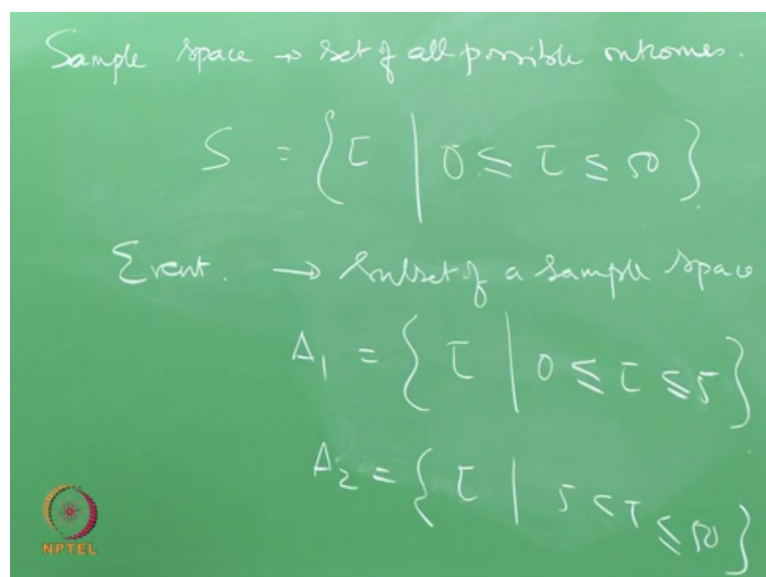 Sample space → set of all possible outcomes.
S = { τ | 0 ≤ τ ≤ 50 }
Event. → Subset of a sample space
A₁ = { τ | 0 ≤ τ ≤ 5 }
A₂ = { τ | 5 < τ ≤ 50 }
NPTEL